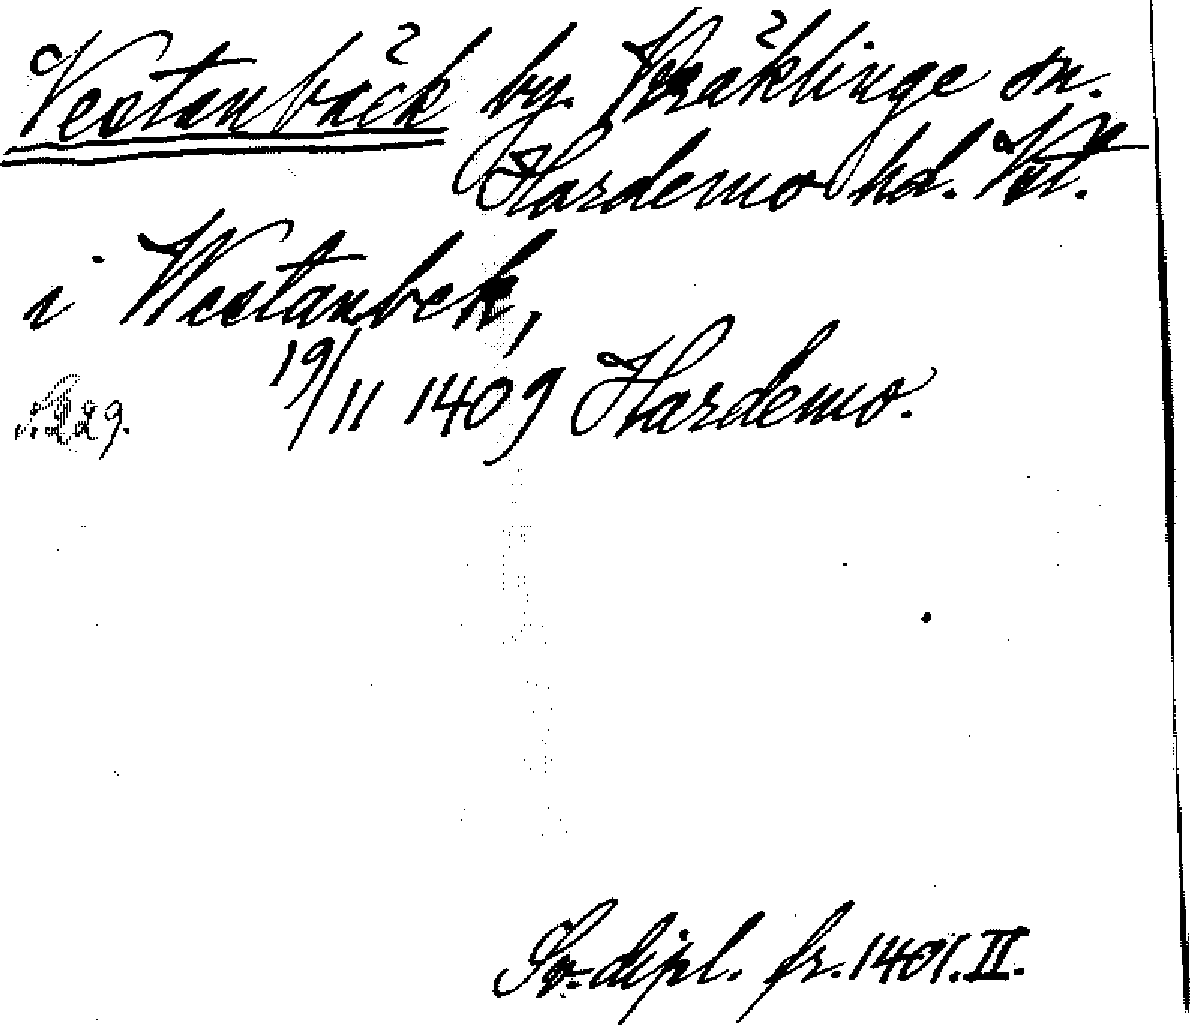 Vestanbäck by. Kräklinge sn.
Hardemo hd.
i Westanbek,
19/11 1409 Hardemo.
Sv. dipl. fr. 1401. II.